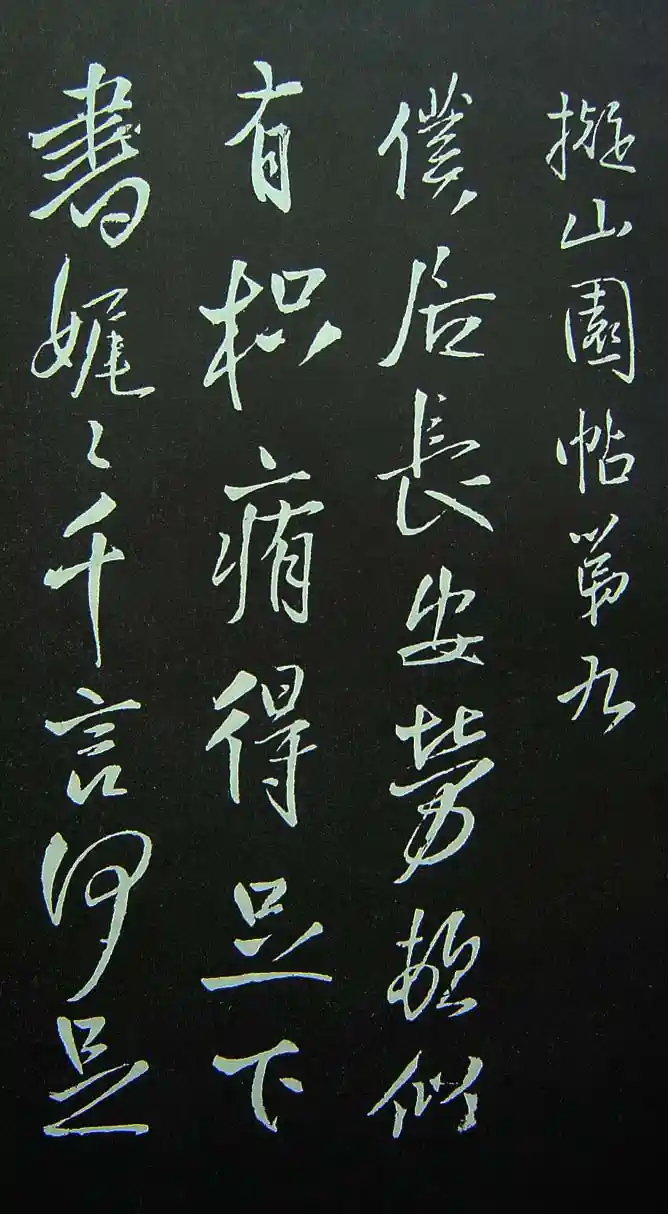 擬山園帖第九
僕居長安勞頓似
有枳痏得足下
書娓〻千言何足